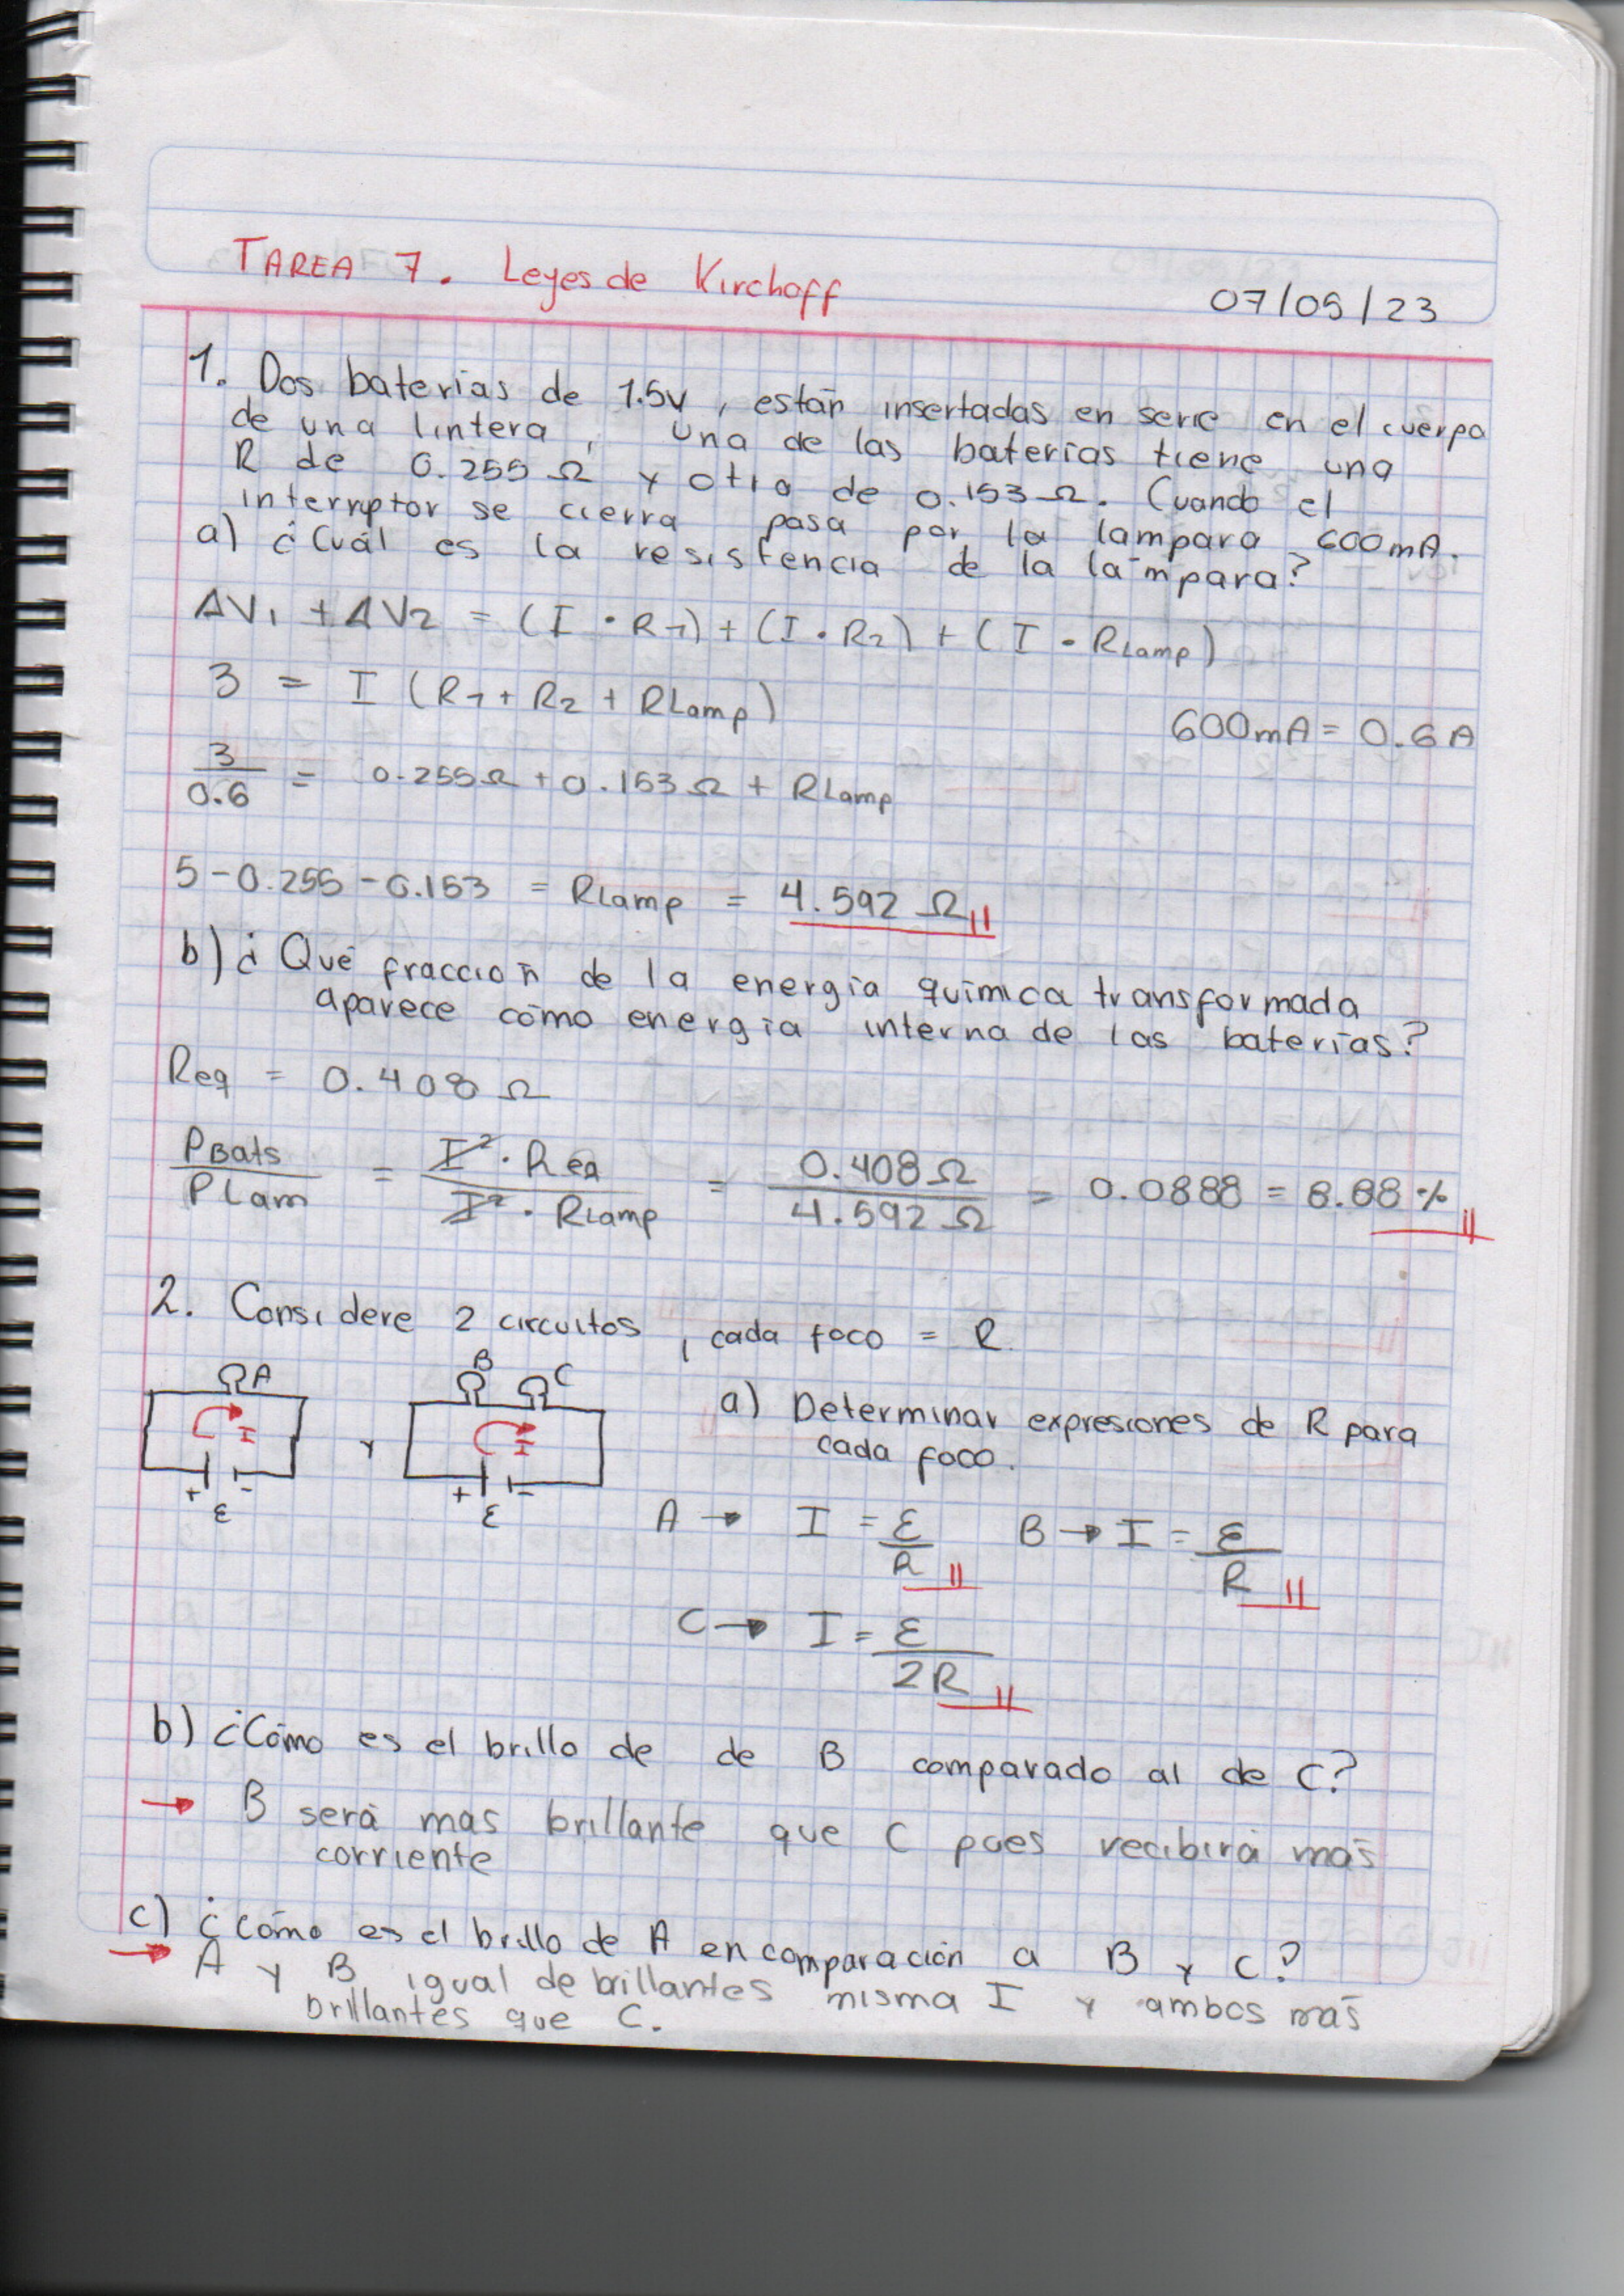 TAREA 7. Leyes de Kirchoff
07/05/23
1. Dos baterías de 1.5v, están insertadas en serie en el cuerpo
de una lintera, una de las baterías tiene una
R de 0.255 Ω y otra de 0.153 Ω. Cuando el
interruptor se cierra pasa por la lampara 600mA.
a) ¿Cuál es la resistencia de la lámpara?
ΔV1 + ΔV2 = (I · R1) + (I · R2) + (I · RLamp)
3 = I (R1 + R2 + RLamp)
600mA = 0.6 A
3/0.6 = 0.255Ω + 0.153Ω + RLamp
5 - 0.255 - 0.153 = RLamp = 4.592 Ω
b) ¿Qué fracción de la energía química transformada
aparece como energía interna de las baterías?
Req = 0.408 Ω
PBats/PLam = I² · Req/I² · RLamp = 0.408 Ω/4.592 Ω = 0.0888 = 8.88 %
2. Considere 2 circuitos, cada foco = R.
A
B C
I
y
I
+ -
ε
+ -
ε
a) Determinar expresiones de R para
cada foco.
A → I = ε/R B → I = ε/R
C → I = ε/2R
b) ¿Cómo es el brillo de de B comparado al de C?
→ B será mas brillante que C pues recibirá más
corriente
c) ¿Cómo es el brillo de A en comparación a B y C?
→ A y B igual de brillantes misma I y ambos más
brillantes que C.